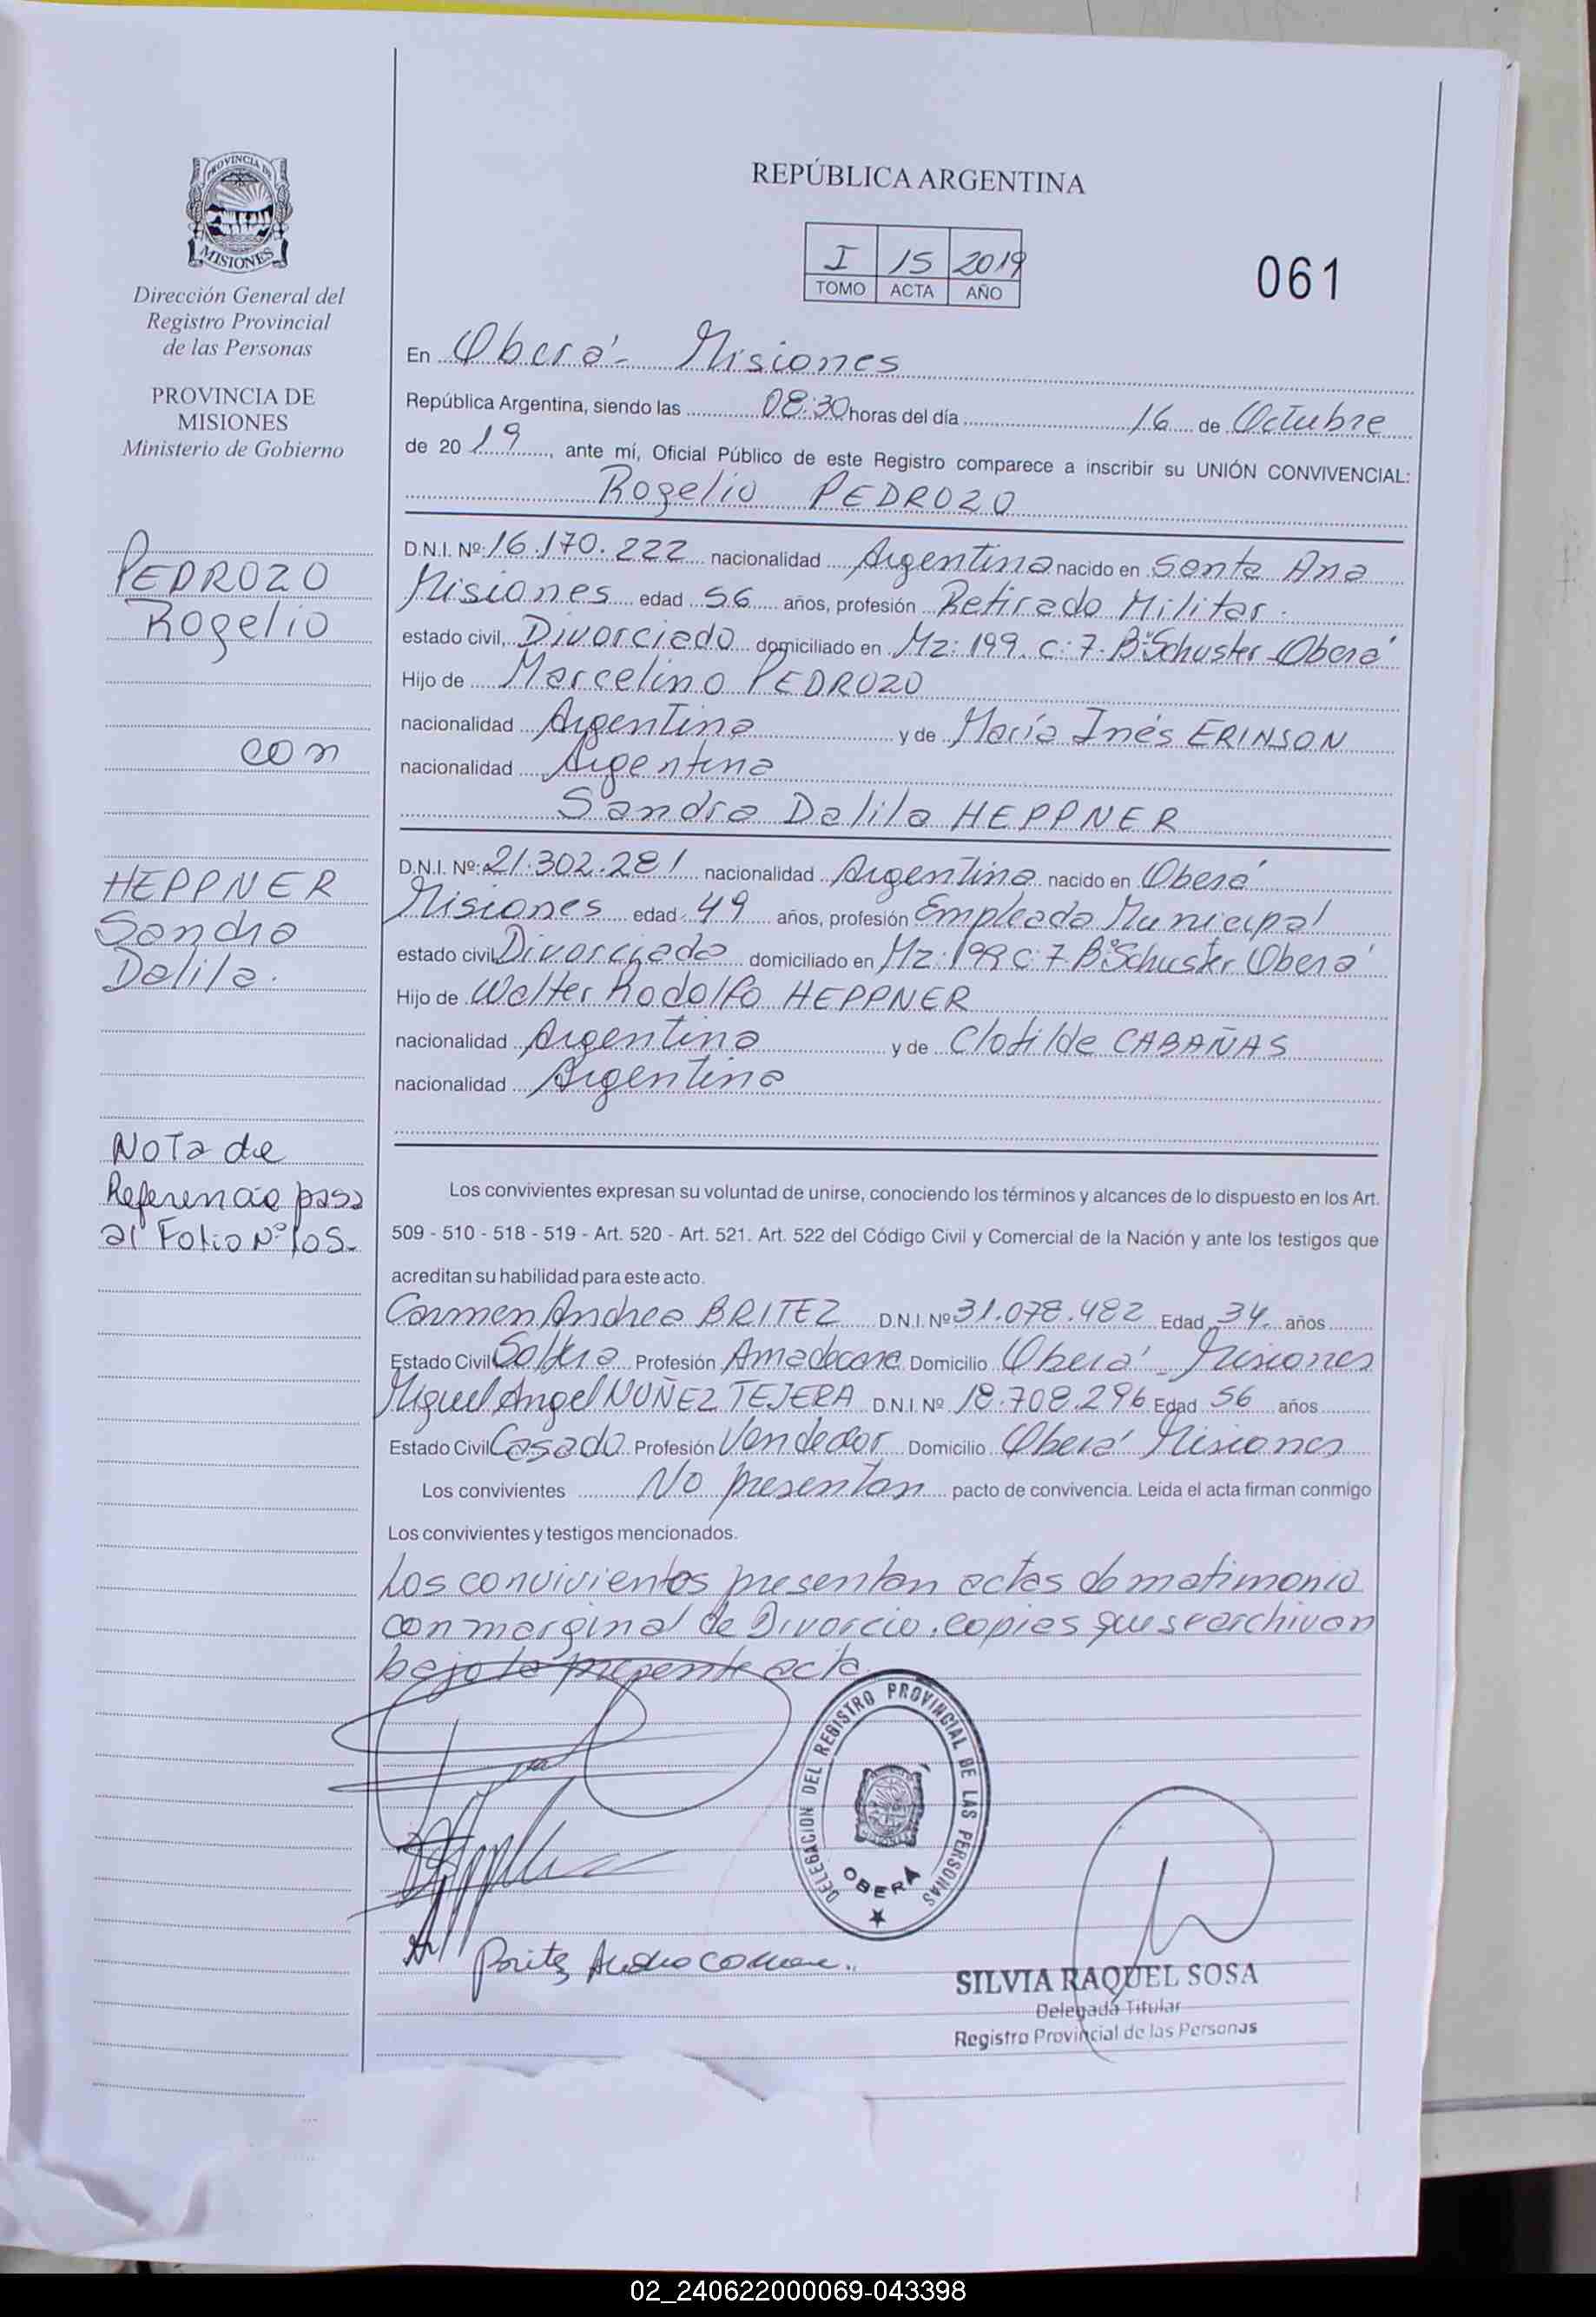 PROVINCIA DE
MISIONES
Dirección General del
Registro Provincial
de las Personas
PROVINCIA DE
MISIONES
Ministerio de Gobierno
PEDROZO
Rogelio
con
HEPPNER
Sandra
Dalila.
Nota de
Referencia pasa
al Folio Nº 105.-
REPÚBLICA ARGENTINA
I 15 2019
TOMO ACTA AÑO
061
En Oberá - Misiones
República Argentina, siendo las 08:30 horas del día 16 de Octubre
de 2019, ante mí, Oficial Público de este Registro comparece a inscribir su UNIÓN CONVIVENCIAL:
Rogelio PEDROZO
D.N.I. Nº: 16.170.222 nacionalidad Argentina nacido en Santa Ana
Misiones edad 56 años, profesión Retirado Militar.
estado civil, Divorciado domiciliado en Mz: 199. C: 7. Bº Schuster Oberá
Hijo de Marcelino PEDROZO
nacionalidad Argentina y de María Inés ERINSON
nacionalidad Argentina
Sandra Dalila HEPPNER
D.N.I. Nº: 21.302.281 nacionalidad Argentina nacido en Oberá
Misiones edad 49 años, profesión Empleada Municipal
estado civil Divorciada domiciliado en Mz: 199 C: 7 Bº Schuster Oberá
Hijo de Walter Rodolfo HEPPNER
nacionalidad Argentina y de Clotilde CABAÑAS
nacionalidad Argentina
Los convivientes expresan su voluntad de unirse, conociendo los términos y alcances de lo dispuesto en los Art.
509 - 510 - 518 - 519 - Art. 520 - Art. 521. Art. 522 del Código Civil y Comercial de la Nación y ante los testigos que
acreditan su habilidad para este acto.
Carmen Andrea BRITEZ D.N.I. Nº 31.078.482 Edad 34 años
Estado Civil Soltera Profesión Ama de casa Domicilio Oberá - Misiones
Miguel Angel NUÑEZ TEJERA D.N.I. Nº 18.708.296 Edad 56 años
Estado Civil Casado Profesión Vendedor Domicilio Oberá Misiones
Los convivientes No presentan pacto de convivencia. Leída el acta firman conmigo
Los convivientes y testigos mencionados.
Los convivientes presentan actas de matimonio
con marginal de Divorcio. copias que se archivan
bajo la presente acta.
DELEGACION DEL REGISTRO PROVINCIAL DE LAS PERSONAS
OBERÁ
SILVIA RAQUEL SOSA
Delegada Titular
Registro Provincial de las Personas
02_240622000069-043398